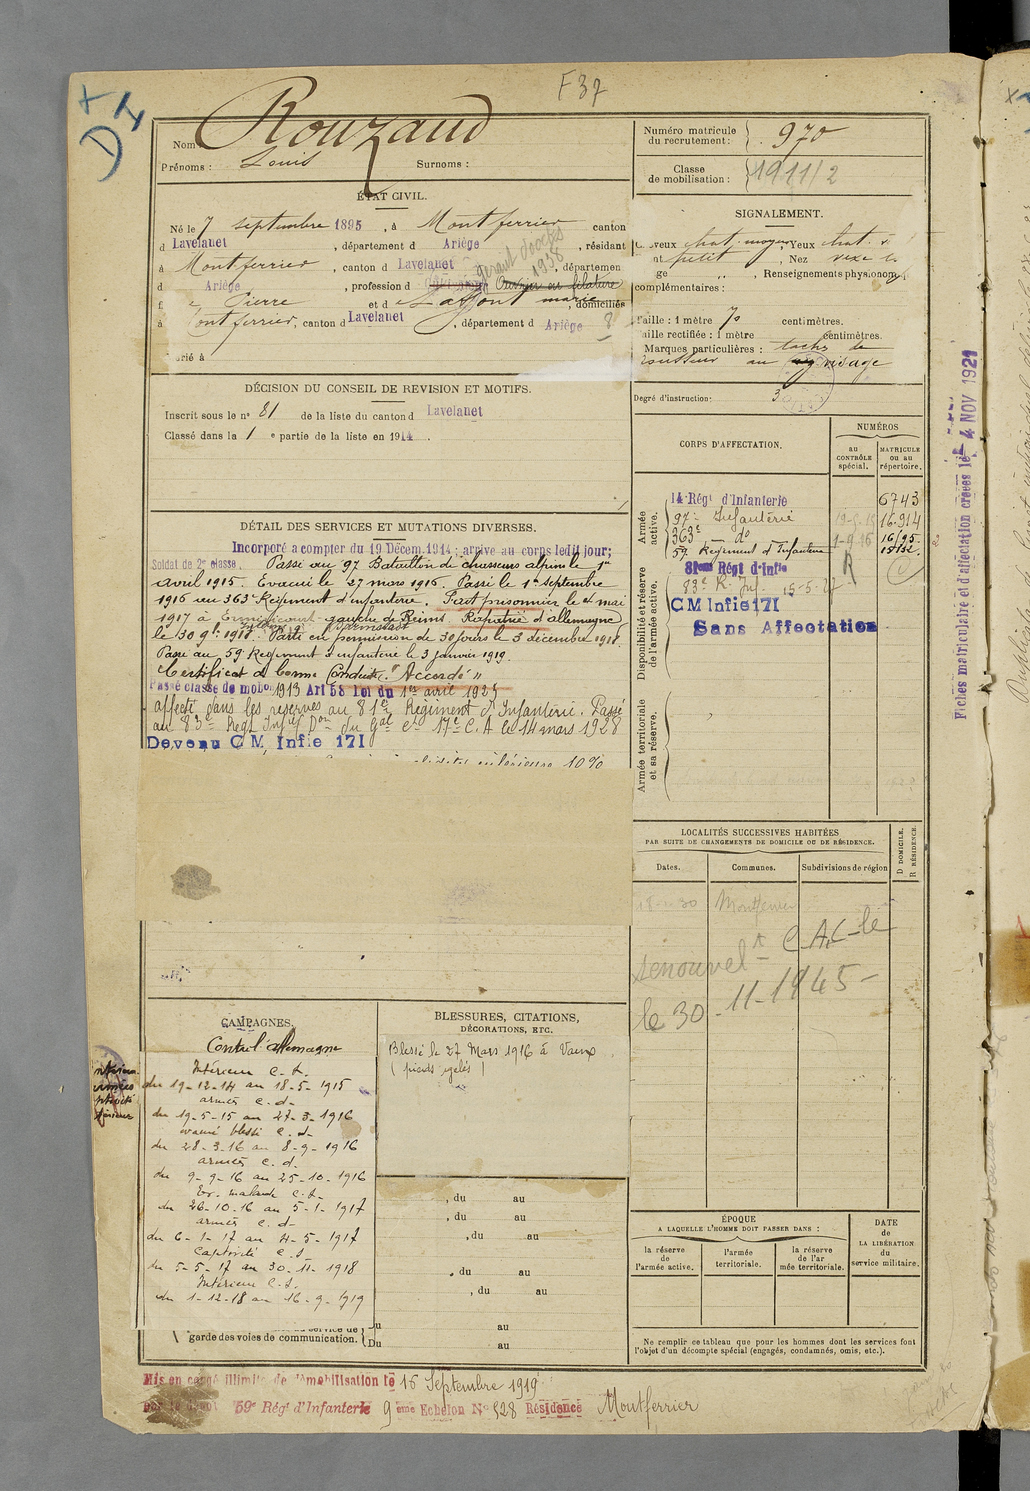 F37
D I
Nom : Rouzaud
Prénoms : Louis Surnoms :
Numéro matricule du recrutement : 970
Classe de mobilisation : 1911/2
ÉTAT CIVIL.
Né le 7 septembre 1895, à Montferrier canton
d Lavelanet, département d Ariège, résidant
à Montferrier, canton d Lavelanet, départemen
d Ariège, profession d Ouvrier en filature
gérant d'octroi 1938
Pierre et d e Laffont marie, domiciliés
à Montferrier, canton d Lavelanet, département d Ariège 8
rié à
SIGNALEMENT.
eveux chat. moyen, Yeux chat.
nt petit, Nez vexe
ge " ", Renseignements physionom
complémentaires :
Taille : 1 mètre 70 centimètres.
aille rectifiée : 1 mètre centimètres.
Marques particulières : taches de
rousseur au visage
Degré d'instruction : 3
DÉCISION DU CONSEIL DE REVISION ET MOTIFS.
Inscrit sous le n° 81 de la liste du canton d Lavelanet
Classé dans la 1 e partie de la liste en 1914.
CORPS D'AFFECTATION.
NUMÉROS
au CONTRÔLE spécial.
MATRICULE OU AU répertoire.
Armée active.
14e Régt d'Infanterie 6743
97e Infanterie 19-5-15 16.914
363e d° 1-9-16 16/95
59 Régiment d'Infanterie
Disponibilité et réserve de l'armée active.
81eme Régt d'Infie
83e R. Inf. 15-5-27
CM Infie 17I
Sans Affectation
Armée territoriale et sa réserve.
Fiches matriculaire et d'affectation créées le 4 NOV 1921
DÉTAIL DES SERVICES ET MUTATIONS DIVERSES.
Incorporé à compter du 19 Décem. 1914 ; arrivé au corps ledit jour;
Soldat de 2e classe. Passé au 97 Bataillon de chasseurs alpins le 1er
avril 1915. Evacué le 27 mars 1916. Passé le 1er septembre
1916 au 363e Régiment d'infanterie. Fait prisonnier le 4 mai
1917 à Ermericourt gauche de Reims. Rapatrié d'allemagne
Interné à Darmstadt
le 30 9bre 1918. Parti en permission de 30 jours le 3 décembre 1918.
Passé au 59e Régiment d'infanterie le 3 janvier 1919.
Certificat de bonne Conduite "Accordé"
Passé classe de mobon 1913 Art 58 Loi du 1er avril 1923
affecté dans les réserves au 81e Régiment d'Infanterie. Passé
au 83e Régt Infie Don du Gal Ct 17e C.A le 14 mars 1928
Devenu CM Infie 17I
inférieure 10%
LOCALITÉS SUCCESSIVES HABITÉES
PAR SUITE DE CHANGEMENTS DE DOMICILE OU DE RÉSIDENCE.
Dates. Communes. Subdivisions de région
D DOMICILE. R RÉSIDENCE.
30 Montferrier
renouvelt C.A.C-le
le 30-11-1945-
CAMPAGNES.
Contre l'allemagne
Intérieur C.S.
du 19-12-14 au 18-5-1915
armées c.d.
du 19-5-15 au 27-3-1916
evacué blessé c.d.
du 28-3-16 au 8-9-1916
armées c.d.
du 9-9-16 au 25-10-1916
Ev. malade C.S.
du 26-10-16 au 5-1-1917
armées c.d.
du 6-1-17 au 4-5-1917
Captivité C.S.
du 5-5-17 au 30-11-1918
Intérieur C.S.
du 1-12-18 au 16-9-1919
BLESSURES, CITATIONS,
DÉCORATIONS, ETC.
Blessé le 27 Mars 1916 à Vaux
(pieds gelés)
, du au
, du au
, du au
, du au
, du au
garde des voies de communication. Du au
Du au
ÉPOQUE
A LAQUELLE L'HOMME DOIT PASSER DANS :
la réserve de l'armée active. l'armée territoriale. la réserve de l'armée territoriale.
DATE de LA LIBÉRATION du service militaire.
Ne remplir ce tableau que pour les hommes dont les services font
l'objet d'un décompte spécial (engagés, condamnés, omis, etc.).
Mis en congé illimité de démobilisation le 16 Septembre 1919
par le dépôt 59e Régt d'Infanterie 9eme Echelon N° 528 Résidence Montferrier